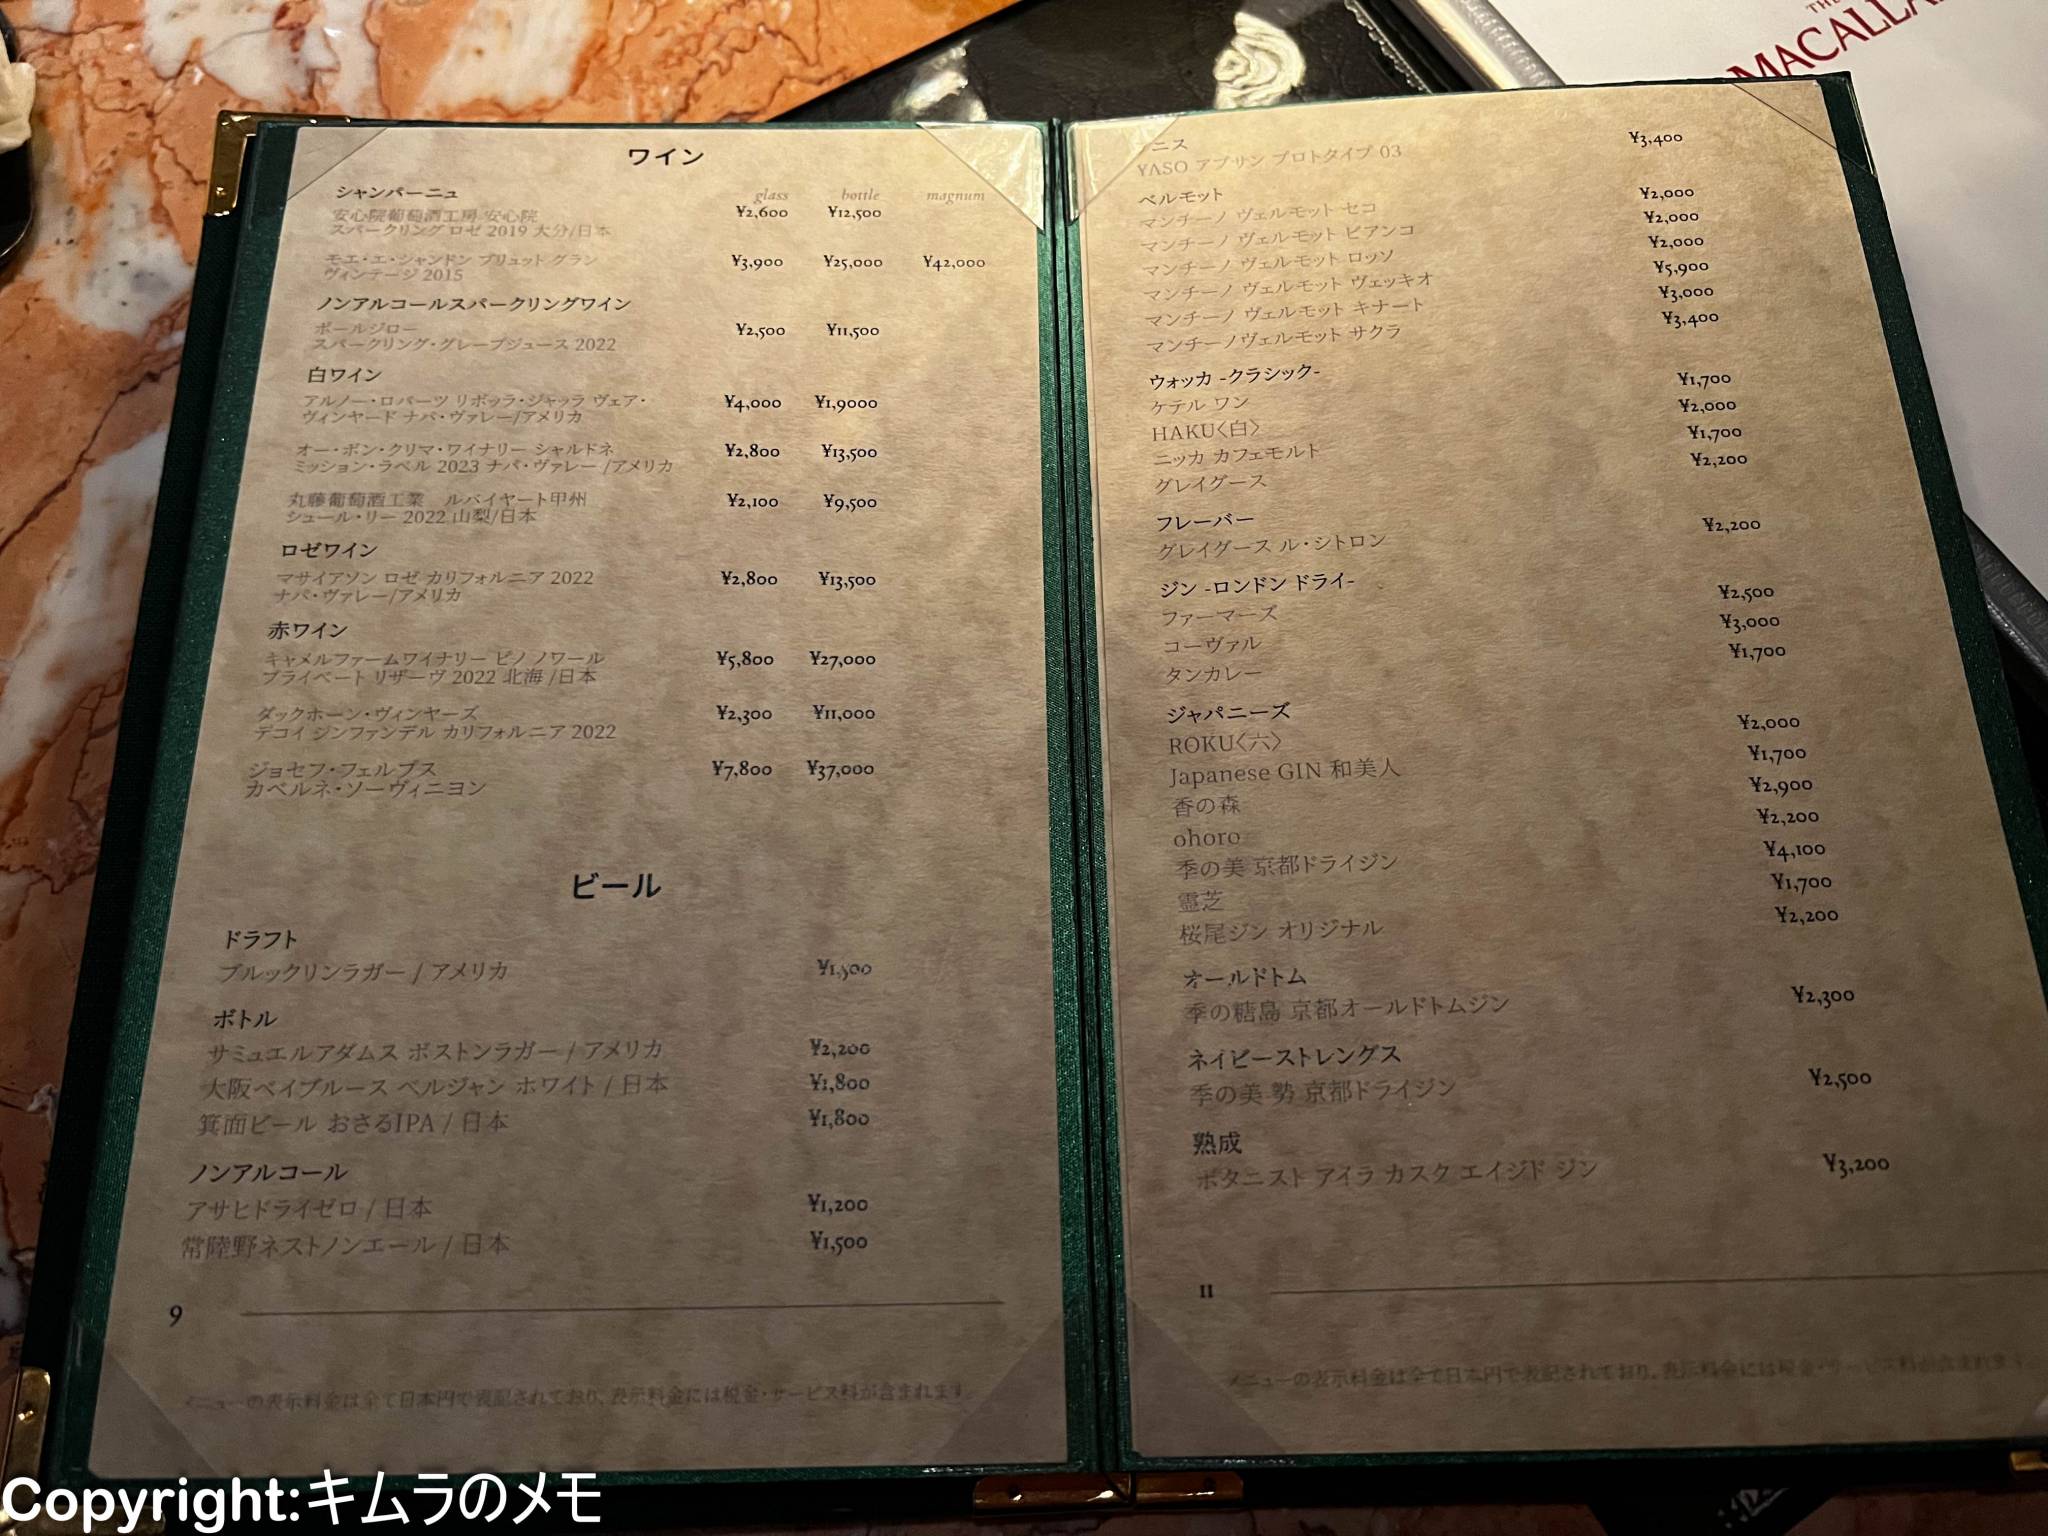 THE
MACALLA
ワイン
glass bottle magnum
シャンパーニュ
安心院葡萄酒工房 安心院 ¥2,600 ¥12,500
スパークリング ロゼ 2019 大分/日本
モエ・エ・シャンドン ブリュット グラン ¥3,900 ¥25,000 ¥42,000
ヴィンテージ 2015
ノンアルコールスパークリングワイン
ポールジロー ¥2,500 ¥11,500
スパークリング・グレープジュース 2022
白ワイン
アルノー・ロバーツ リボッラ・ジャッラ ヴェア・ ¥4,000 ¥1,9000
ヴィンヤード ナパ・ヴァレー/アメリカ
オー・ボン・クリマ・ワイナリー シャルドネ ¥2,800 ¥13,500
ミッション・ラベル 2023 ナパ・ヴァレー /アメリカ
丸藤葡萄酒工業 ルバイヤート甲州 ¥2,100 ¥9,500
シュール・リー 2022 山梨/日本
ロゼワイン
マサイアソン ロゼ カリフォルニア 2022 ¥2,800 ¥13,500
ナパ・ヴァレー/アメリカ
赤ワイン
キャメルファームワイナリー ピノ ノワール ¥5,800 ¥27,000
プライベート リザーヴ 2022 北海 /日本
ダックホーン・ヴィンヤーズ ¥2,300 ¥11,000
デコイ ジンファンデル カリフォルニア 2022
ジョセフ・フェルプス ¥7,800 ¥37,000
カベルネ・ソーヴィニヨン
ビール
ドラフト
ブルックリンラガー / アメリカ ¥1,500
ボトル
サミュエルアダムス ボストンラガー / アメリカ ¥2,200
大阪ベイブルース ベルジャン ホワイト / 日本 ¥1,800
箕面ビール おさるIPA / 日本 ¥1,800
ノンアルコール
アサヒドライゼロ / 日本 ¥1,200
常陸野ネストノンエール / 日本 ¥1,500
9
メニューの表示料金は全て日本円で表記されており、表示料金には税金・サービス料が含まれます。
ニス
YASO アブサン プロトタイプ 03 ¥3,400
ベルモット
マンチーノ ヴェルモット セコ ¥2,000
マンチーノ ヴェルモット ビアンコ ¥2,000
マンチーノ ヴェルモット ロッソ ¥2,000
マンチーノ ヴェルモット ヴェッキオ ¥5,900
マンチーノ ヴェルモット キナート ¥3,000
マンチーノヴェルモット サクラ ¥3,400
ウォッカ -クラシック-
ケテル ワン ¥1,700
HAKU〈白〉 ¥2,000
ニッカ カフェモルト ¥1,700
グレイグース ¥2,200
フレーバー
グレイグース ル・シトロン ¥2,200
ジン -ロンドン ドライ-
ファーマーズ ¥2,500
コーヴァル ¥3,000
タンカレー ¥1,700
ジャパニーズ
ROKU〈六〉 ¥2,000
Japanese GIN 和美人 ¥1,700
香の森 ¥2,900
ohoro ¥2,200
季の美 京都ドライジン ¥4,100
霊芝 ¥1,700
桜尾ジン オリジナル ¥2,200
オールドトム
季の糖島 京都オールドトムジン ¥2,300
ネイビーストレングス
季の美 勢 京都ドライジン ¥2,500
熟成
ボタニスト アイラ カスク エイジド ジン ¥3,200
11
メニューの表示料金は全て日本円で表記されており、表示料金には税金・サービス料が含まれます
Copyright:キムラのメモ